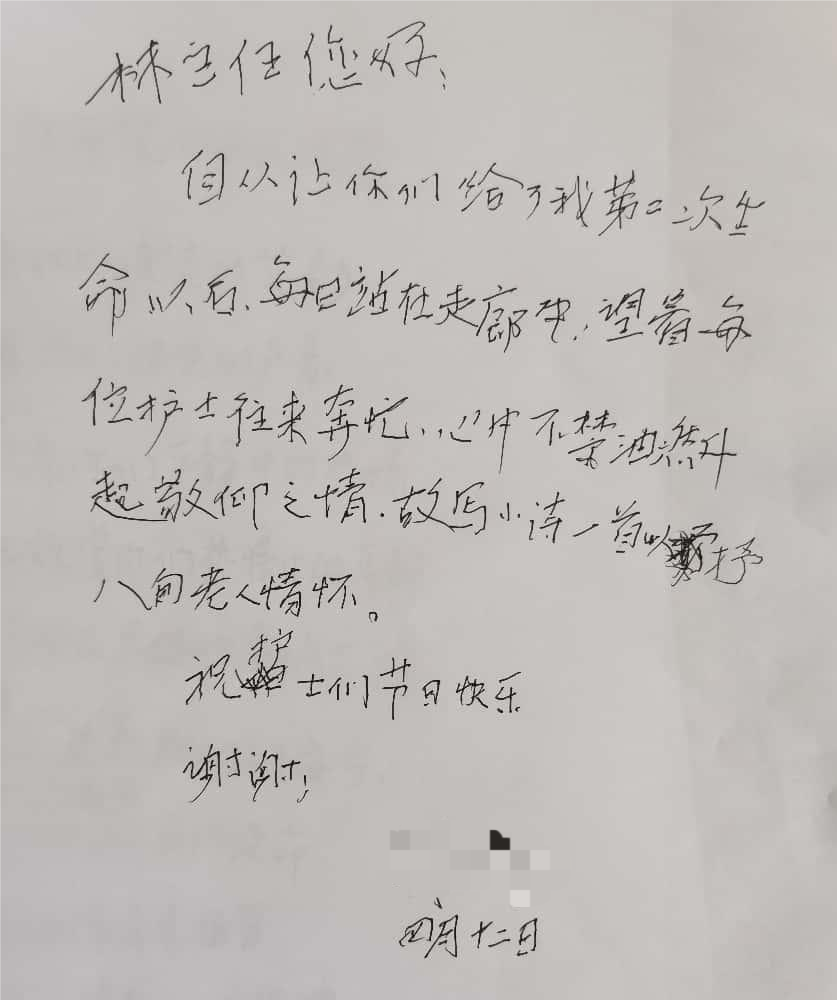 林主任您好:
自从让你们给了我第二次生
命以后、每日站在走廊中,望着每
位护士往来奔忙,心中不禁油然升
起敬仰之情.故写小诗一首以抒
八旬老人情怀。
祝护士们节日快乐
谢谢!
四月十二日